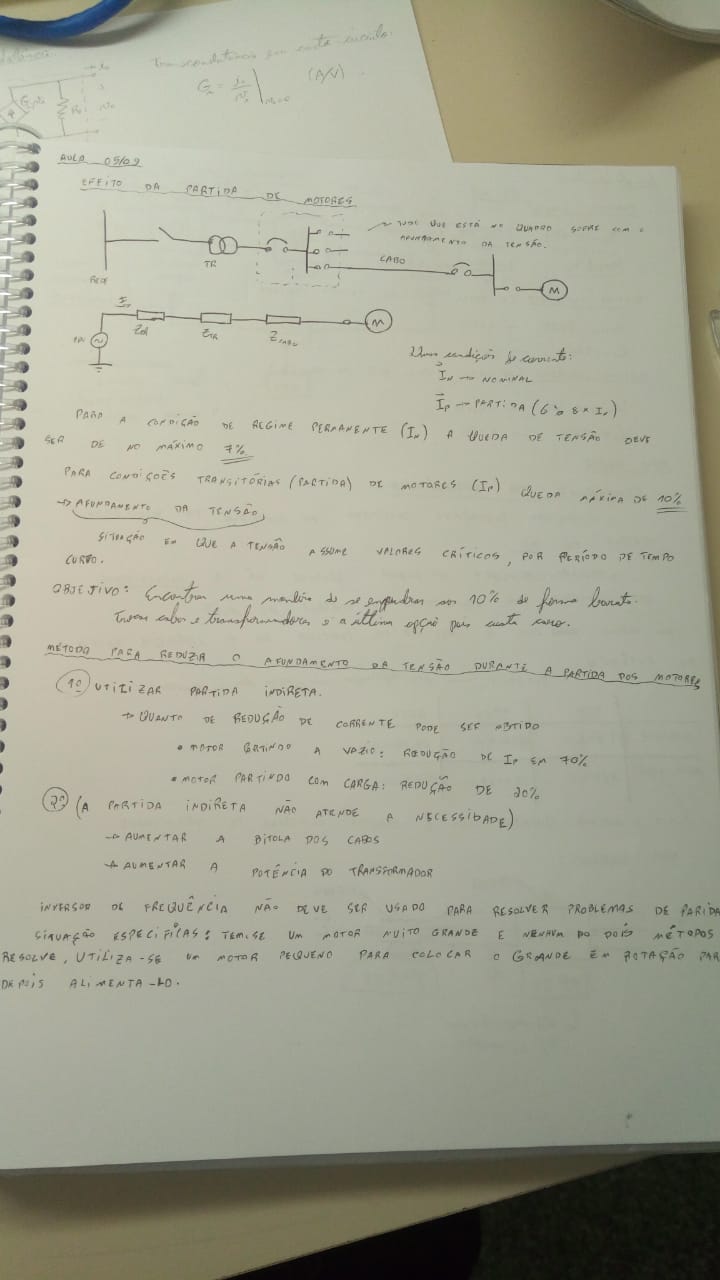 Transcondutância
G = io/vi |
(A/V)
AULA 05/09
EFEITO DA PARTIDA DE MOTORES
TUDO QUE ESTÁ NO QUADRO SOFRE COM O
AFUNDAMENTO DA TENSÃO.
CABO
REDE
TR
M
Ip
ZTR
ZCABO
M
condição de corrente:
IN → NOMINAL
Ip → PARTIDA (6 à 8 × IN)
PARA A CONDIÇÃO DE REGIME PERMANENTE (IN) A QUEDA DE TENSÃO DEVE
SER DE NO MÁXIMO 7%
PARA CONDIÇÕES TRANSITÓRIAS (PARTIDA) DE MOTORES (IP) QUEDA MÁXIMA DE 10%
→ AFUNDAMENTO DA TENSÃO
SITUAÇÃO EM QUE A TENSÃO ASSUME VALORES CRÍTICOS, POR PERÍODO DE TEMPO
CURTO.
OBJETIVO: Encontrar uma maneira de se enquadrar nos 10% de forma barata.
Trocar cabos e transformadores é a última opção pois custa caro.
MÉTODO PARA REDUZIR O AFUNDAMENTO DA TENSÃO DURANTE A PARTIDA DOS MOTORES
1º UTILIZAR PARTIDA INDIRETA.
→ QUANTO DE REDUÇÃO DE CORRENTE PODE SER OBTIDO
• MOTOR A VAZIO: REDUÇÃO DE IP EM 70%
• MOTOR PARTINDO COM CARGA: REDUÇÃO DE 20%
2º (A PARTIDA INDIRETA NÃO ATENDE A NECESSIDADE)
→ AUMENTAR A BITOLA DOS CABOS
→ AUMENTAR A POTÊNCIA DO TRANSFORMADOR
INVERSOR DE FREQUÊNCIA NÃO DEVE SER USADO PARA RESOLVER PROBLEMAS DE PARIDA
SITUAÇÃO ESPECÍFICAS: TEM-SE UM MOTOR MUITO GRANDE E NENHUM DO DOIS MÉTODOS
RESOLVE, UTILIZA-SE UM MOTOR PEQUENO PARA COLOCAR O GRANDE EM ROTAÇÃO PAR
DEPOIS ALIMENTA-LO.